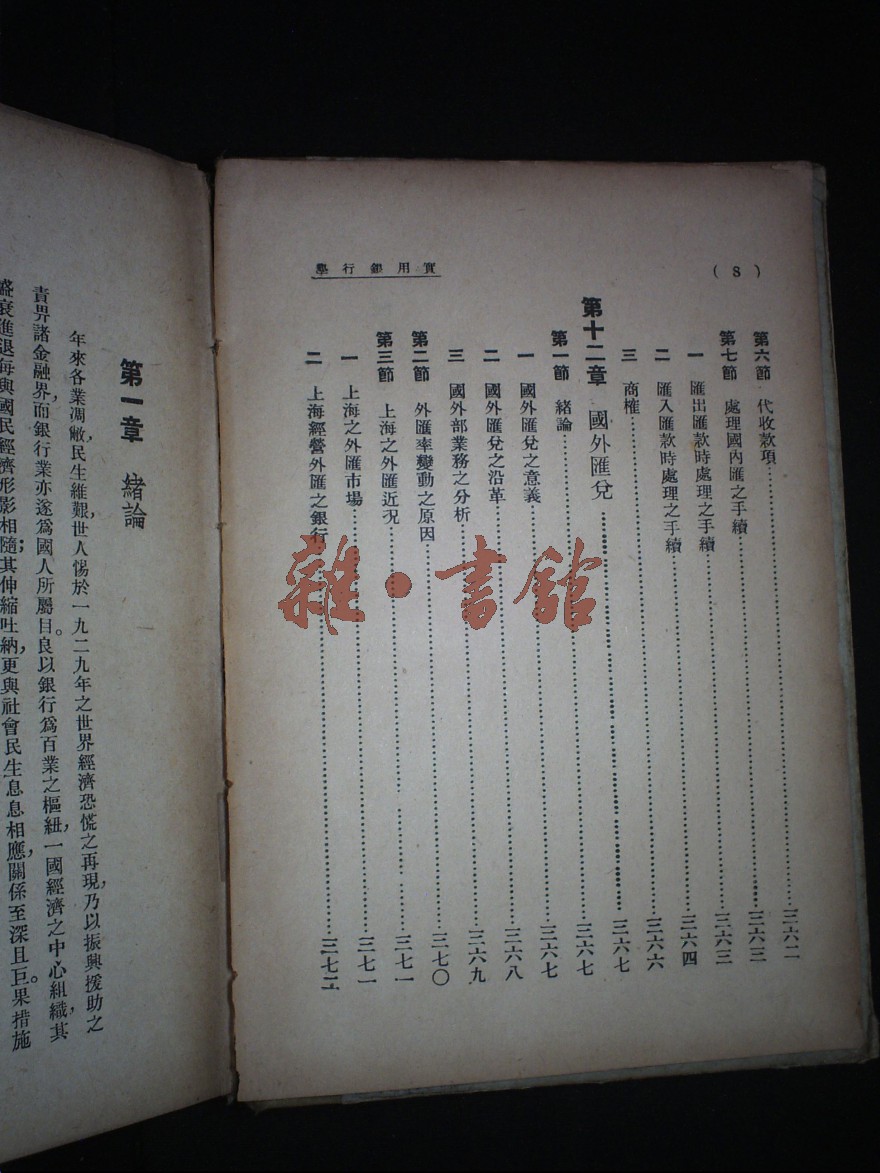 (8)
實用銀行學
第六節 代收款項……三六二
第七節 處理國內匯之手續……三六三
一 匯出匯款時處理之手續……三六三
二 匯入匯款時處理之手續……三六四
三 商榷……三六六
第十二章 國外匯兌……三六七
第一節 緒論……三六七
一 國外匯兌之意義……三六七
二 國外匯兌之沿革……三六八
三 國外部業務之分析……三六九
第二節 外匯率變動之原因……三七〇
第三節 上海之外匯近況……三七一
一 上海之外匯市場……三七一
二 上海經營外匯之銀行……三七二
雜·書館
第一章 緒論
年來各業凋敝，民生維艱，世人惕於一九二九年之世界經濟恐慌之再現，乃以振興援助之
責畀諸金融界，而銀行業亦遂爲國人所屬目。良以銀行爲百業之樞紐，一國經濟之中心組織，其
盛衰進退，每與國民經濟形影相隨；其伸縮吐納，更與社會民生息息相應，關係至深且巨。果措施